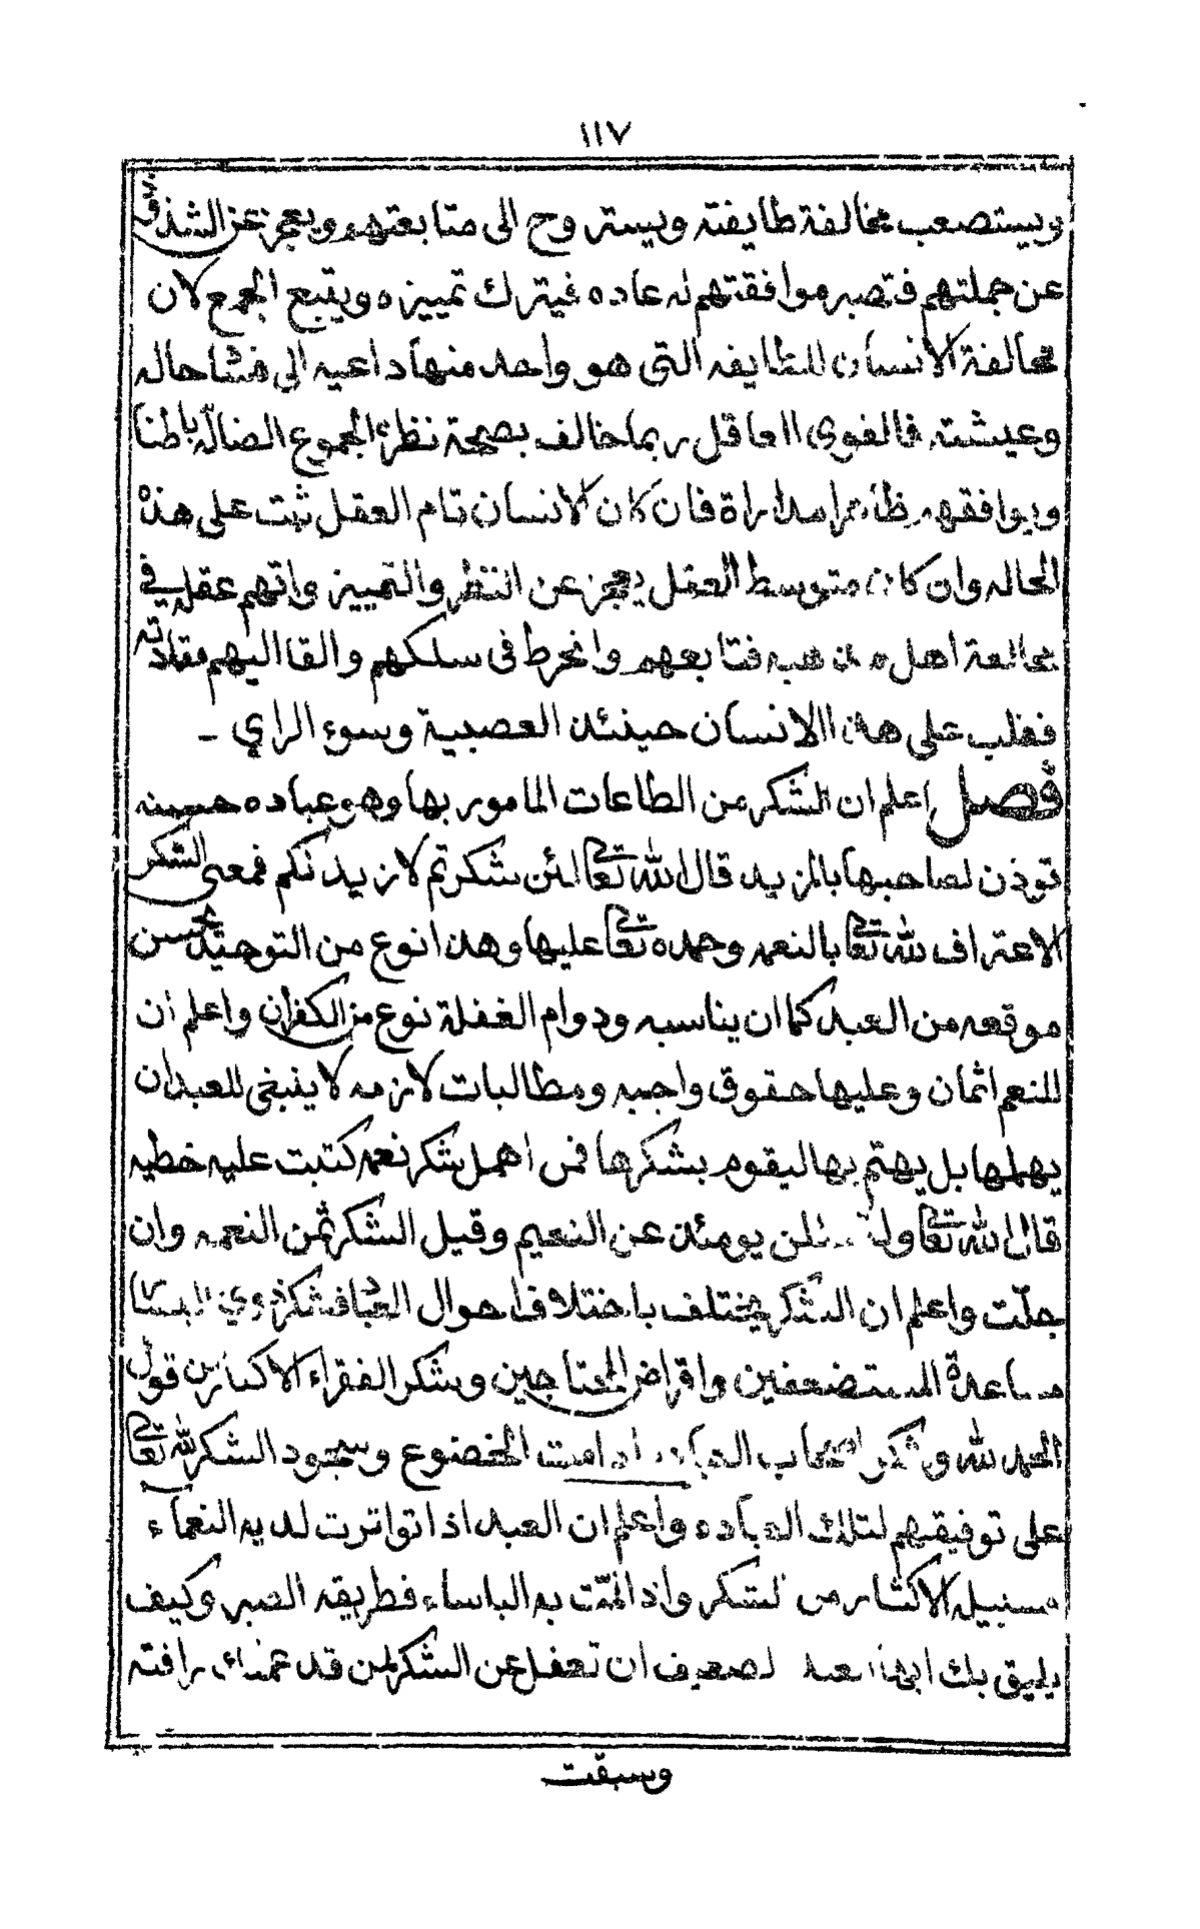 ١١٧
ويستصعب مخالفة طايفته ويستروح الى متابعتهم ويعجز عن الشذوذ
عن جملتهم فتصير موافقتهم له عاده فيترك تمييزه ويتبع الجمع لان
مخالفة الانسان للطايفه التى هو واحد منها داعيه الى فساد حاله
وعيشته فالقوى العاقل ربما خالف بصحة نظره الجموع الضاله باطنا
ويوافقهم ظاهرا مداراة فان كان الانسان تام العقل ثبت على هذه
الحاله وان كان متوسط العقل يعجز عن النظر والتمييز واتهم عقله في
مخالفة اهل مذهبه فتابعهم وانخرط فى سلكهم والقا اليهم مقادته
فغلب على هذا الانسان حينئذ العصبية وسوء الراي -
فصل اعلم ان الشكر من الطاعات المامور بها وهو عباده حسنه
توذن لصاحبها بالمزيد قال الله تعالى لئن شكرتم لازيدنكم فمعنى الشكر
الاعتراف لله تعالى بالنعم وحمده تعالى عليها وهذا نوع من التوحيد يحسن
موقعه من العبد كما ان يناسبه ودوام الغفلة نوع من الكفران واعلم ان
للنعم اثمان وعليها حقوق واجبه ومطالبات لازمه لا ينبغى للعبد ان
يهملها بل يهتم بها ليقوم بشكرها فمن اهمل شكر نعمه كتبت عليه خطيه
قال الله تعالى ولتسئلن يومئذ عن النعيم وقيل الشكر ثمن النعمه وان
جلّت واعلم ان الشكر يختلف باختلاف احوال العباد فشكر ذوي اليسار
مساعدة المستضعفين واقراض المحتاجين وشكر الفقراء الاكثار من قول
الحمد لله وشكر اصحاب العبادة ادامت الخضوع وسجود الشكر لله تعالى
على توفيقهم لتلك العباده واعلم ان العبد اذا تواترت لديه النعماء
فسبيله الاكثار من الشكر واذا المّت به الباساء فطريقه الصبر وكيف
يليق بك ايها العبد الضعيف ان تغفل عن الشكر لمن قد عمتك رافته
وسبقت